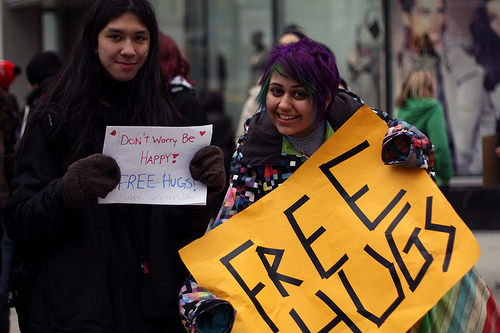 DON'T WORRY BE
HAPPY!
FREE HUGS!
FREE
HUGS